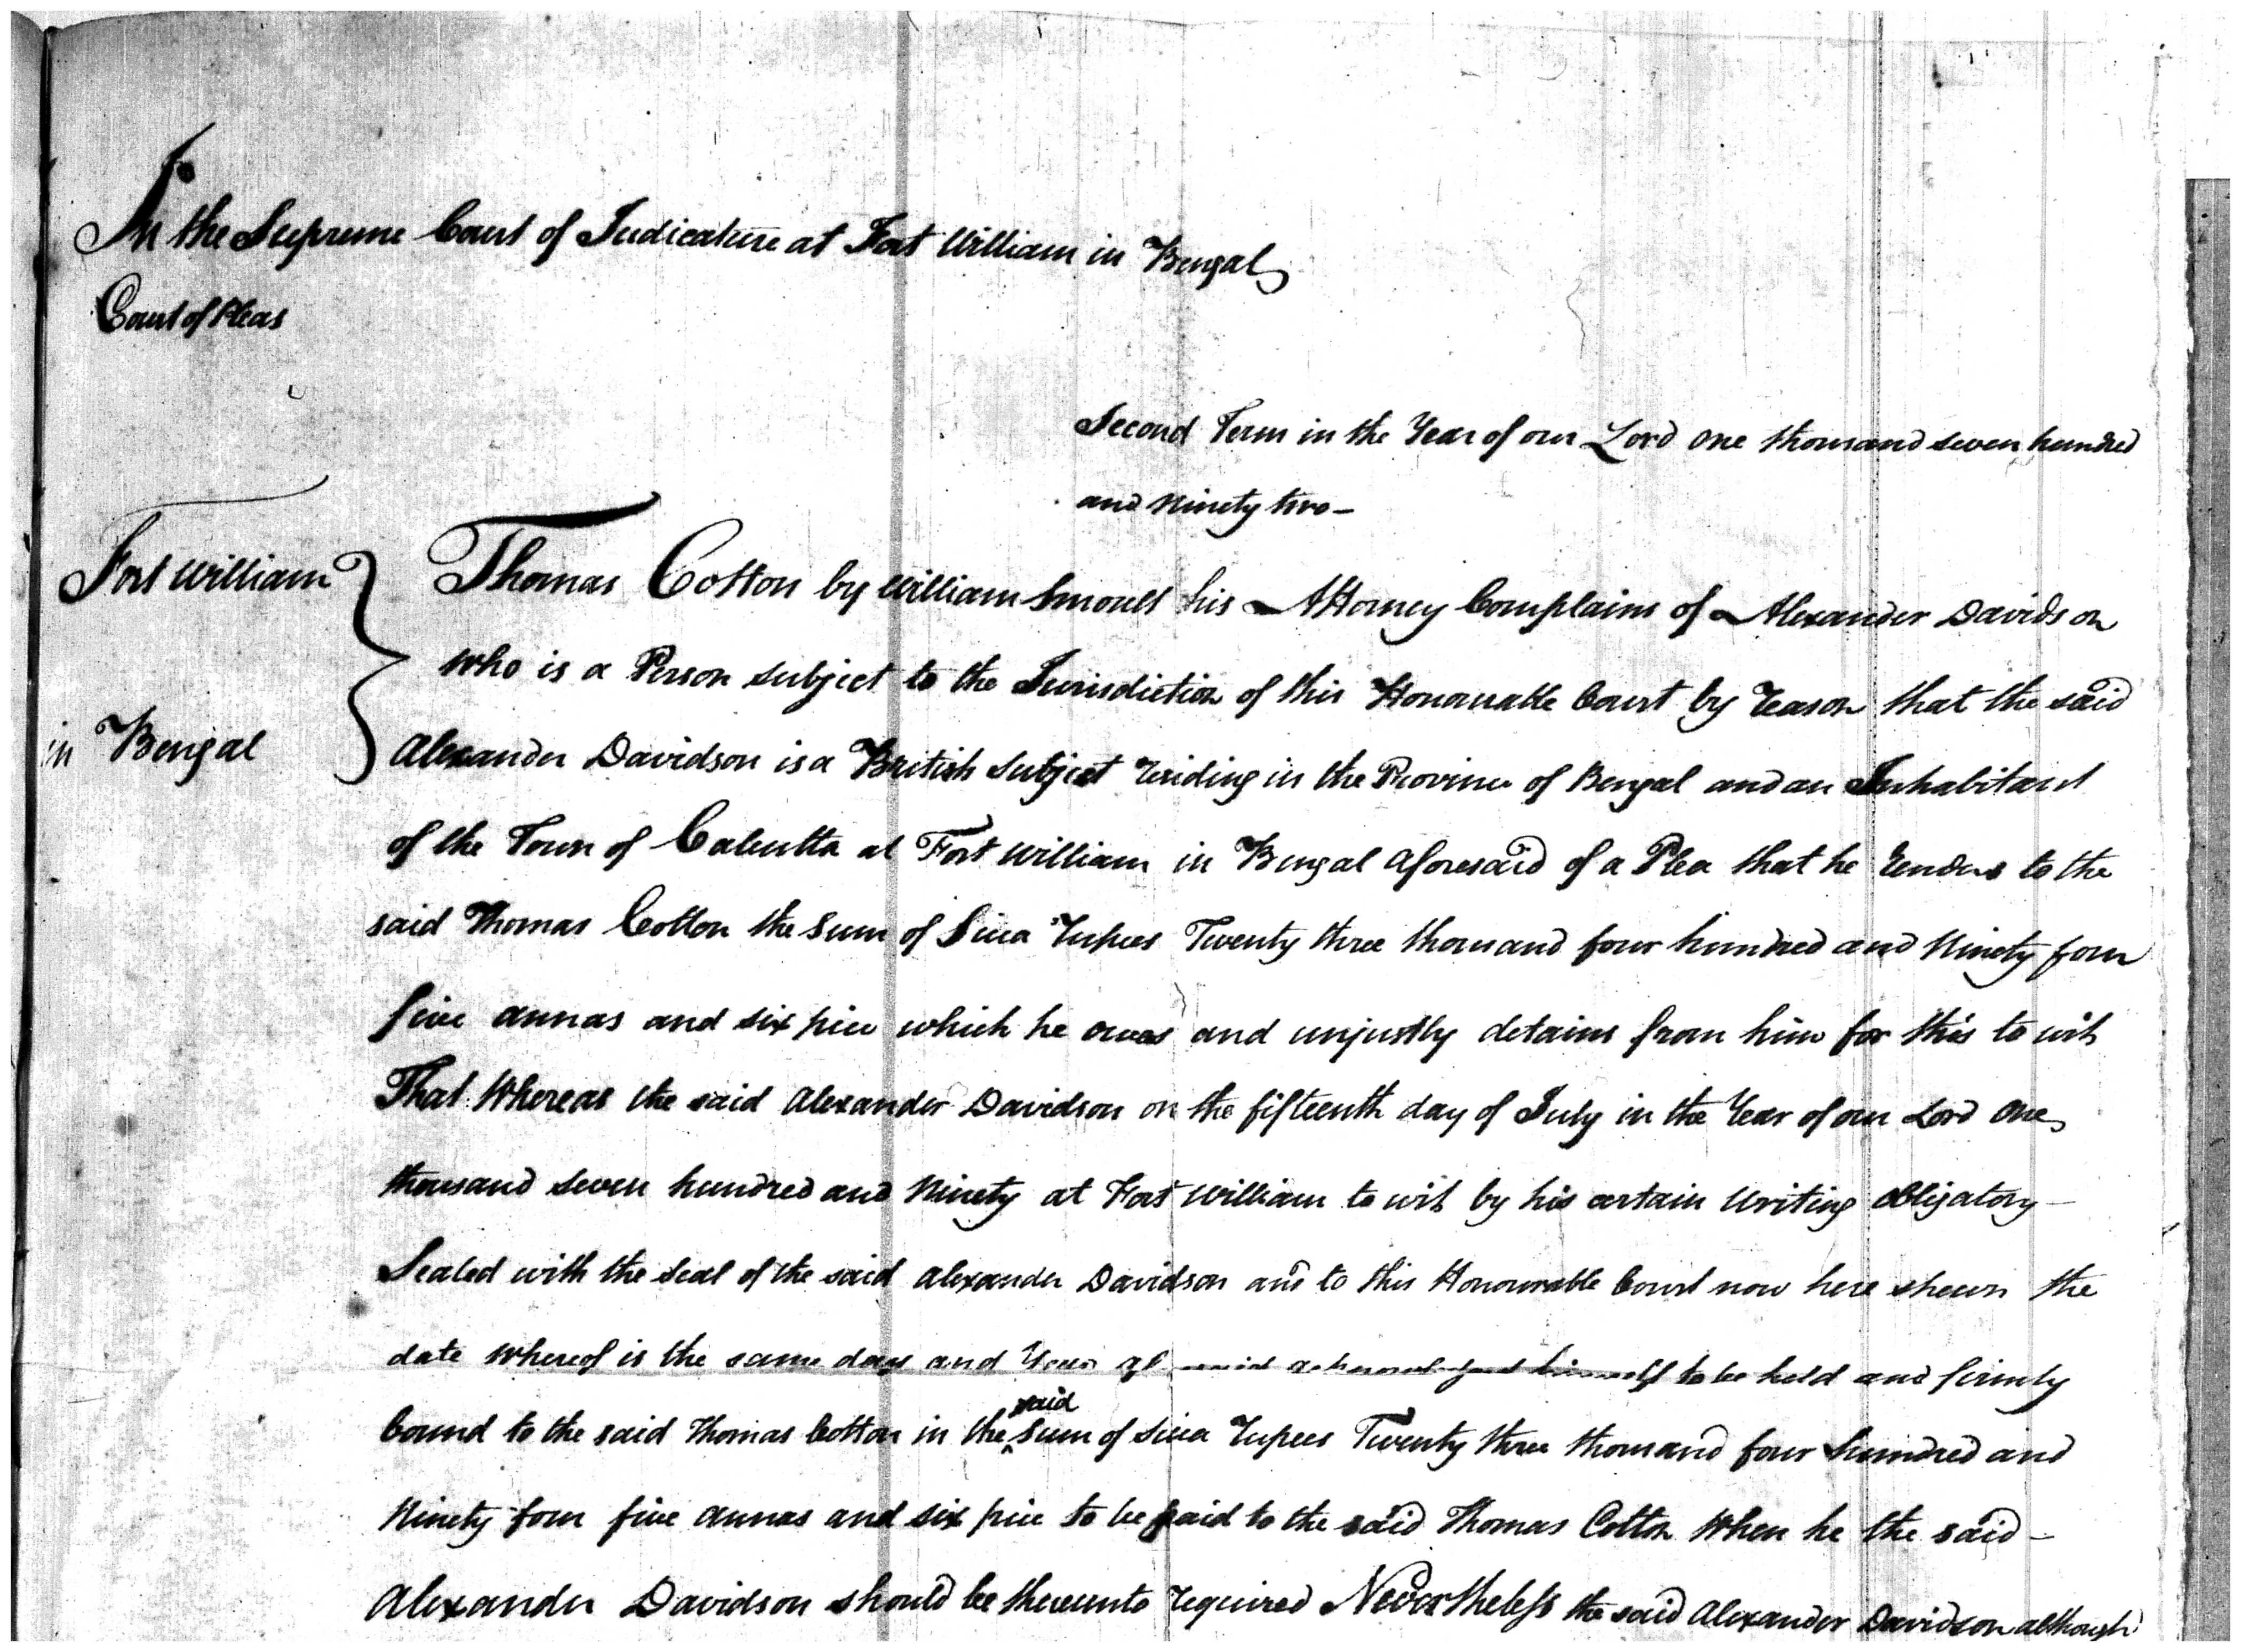 In the Supreme Court of Judicature at Fort William in Bengal
Court of Pleas
Second Term in the Year of our Lord one thousand seven hundred
and Ninety two -
Fort William
in Bengal
Thomas Cotton by William Smoult his Attorney Complains of Alexander Davidson
who is a Person subject to the Jurisdiction of this Honourable Court by reason that the said
Alexander Davidson is a British Subject residing in the Province of Bengal and an Inhabitant
of the Town of Calcutta at Fort William in Bengal aforesaid of a Plea that he renders to the
said Thomas Cotton the Sum of Sicca rupees Twenty three thousand four hundred and Ninety four
five annas and six pice which he owes and unjustly detains from him for this to wit
That Whereas the said Alexander Davidson on the fifteenth day of July in the Year of our Lord one
thousand seven hundred and Ninety at Fort William to wit by his certain Writing obligatory -
Sealed with the Seal of the said Alexander Davidson and to this Honourable Court now here shewn the
date whereof is the same day and Year aforesaid acknowledged himself to be held and firmly
bound to the said Thomas Cotton in the said Sum of Sicca rupees Twenty three thousand four hundred and
Ninety four five annas and six pice to be paid to the said Thomas Cotton When he the said -
Alexander Davidson should be thereunto required Nevertheless the said Alexander Davidson although